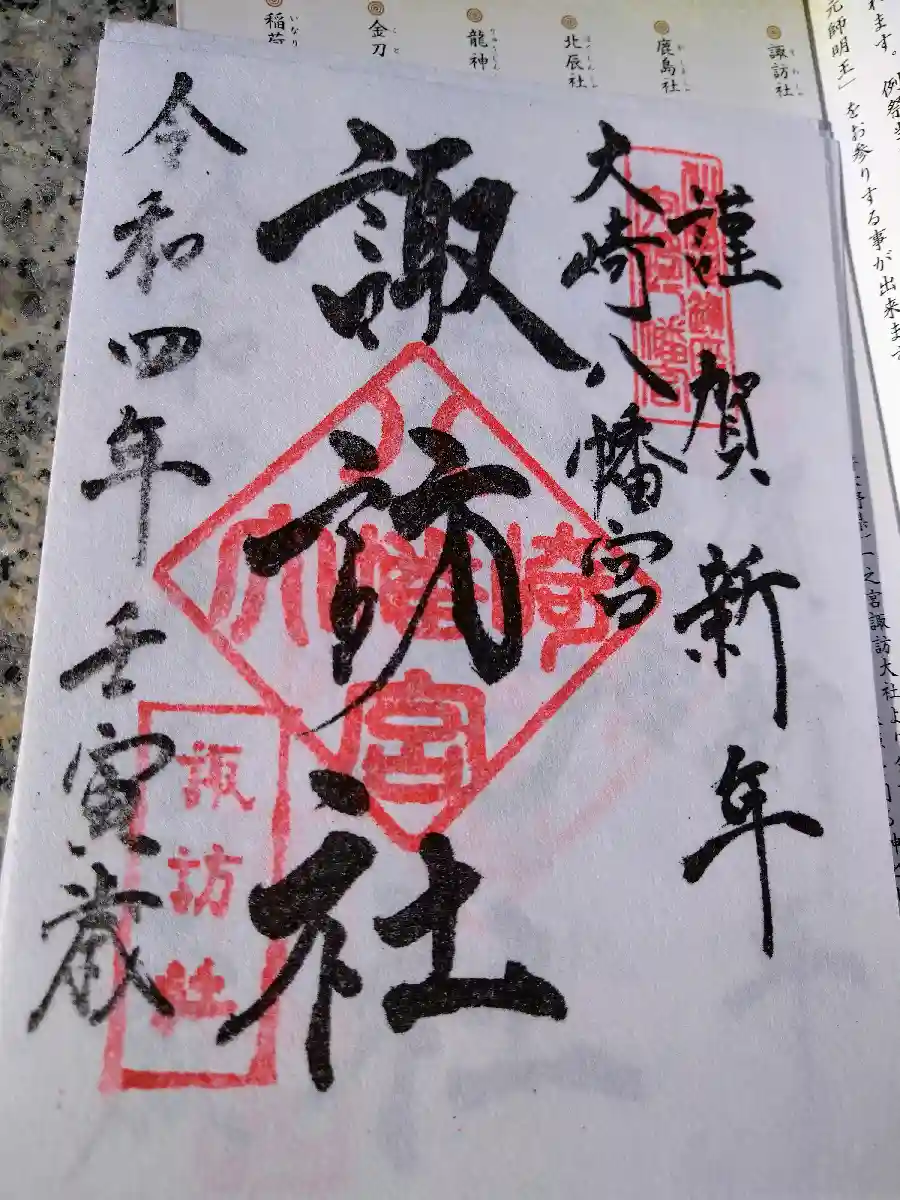 謹賀新年
大崎八幡宮
諏訪社
令和四年壬寅歳
大崎八幡宮
諏訪社
諏訪社
すわしゃ
鹿島社
北辰社
龍神
金刀
こと
稲荷
いなり
元師明王」をお参りする事が出来ます
れます。例祭
之宮諏訪大社よ